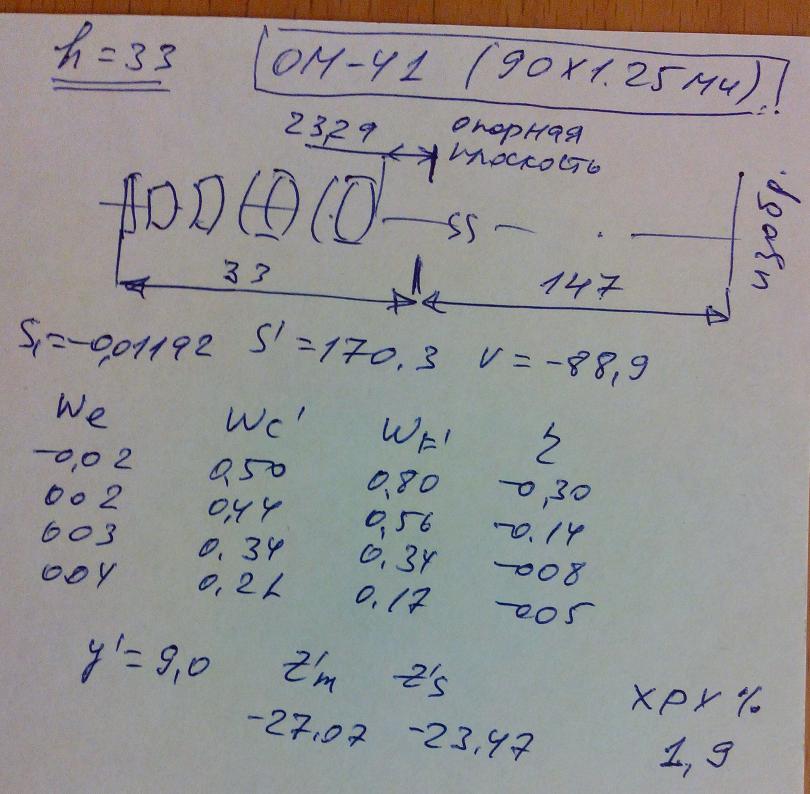 h = 33
ОМ-41 (90X1.25 Ми)!
23,29
опорная
плоскость
33
147
изобр.
S₁ = -0,01192 S' = 170.3 V = -88,9
We Wc' WF' η
-0,02 0,50 0,80 -0,30
002 0,44 0,56 -0.14
003 0.34 0,34 -008
004 0.21 0.17 -005
y' = 9,0 Z'm Z's
-27.07 -23.47
ХРУ %
1,9